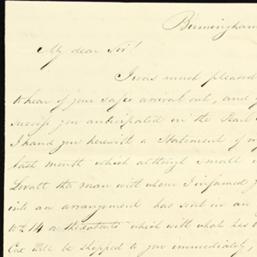 Birmingham
My dear Sir!
I was much pleased
to hear of your safe arrival out, and
success you anticipated in the
I hand you herewith a Statement of
last month which although small
Lovatt the man with whom I informed
into an arrangement has sent us an
which with what has
Cox will be shipped to you immediately,